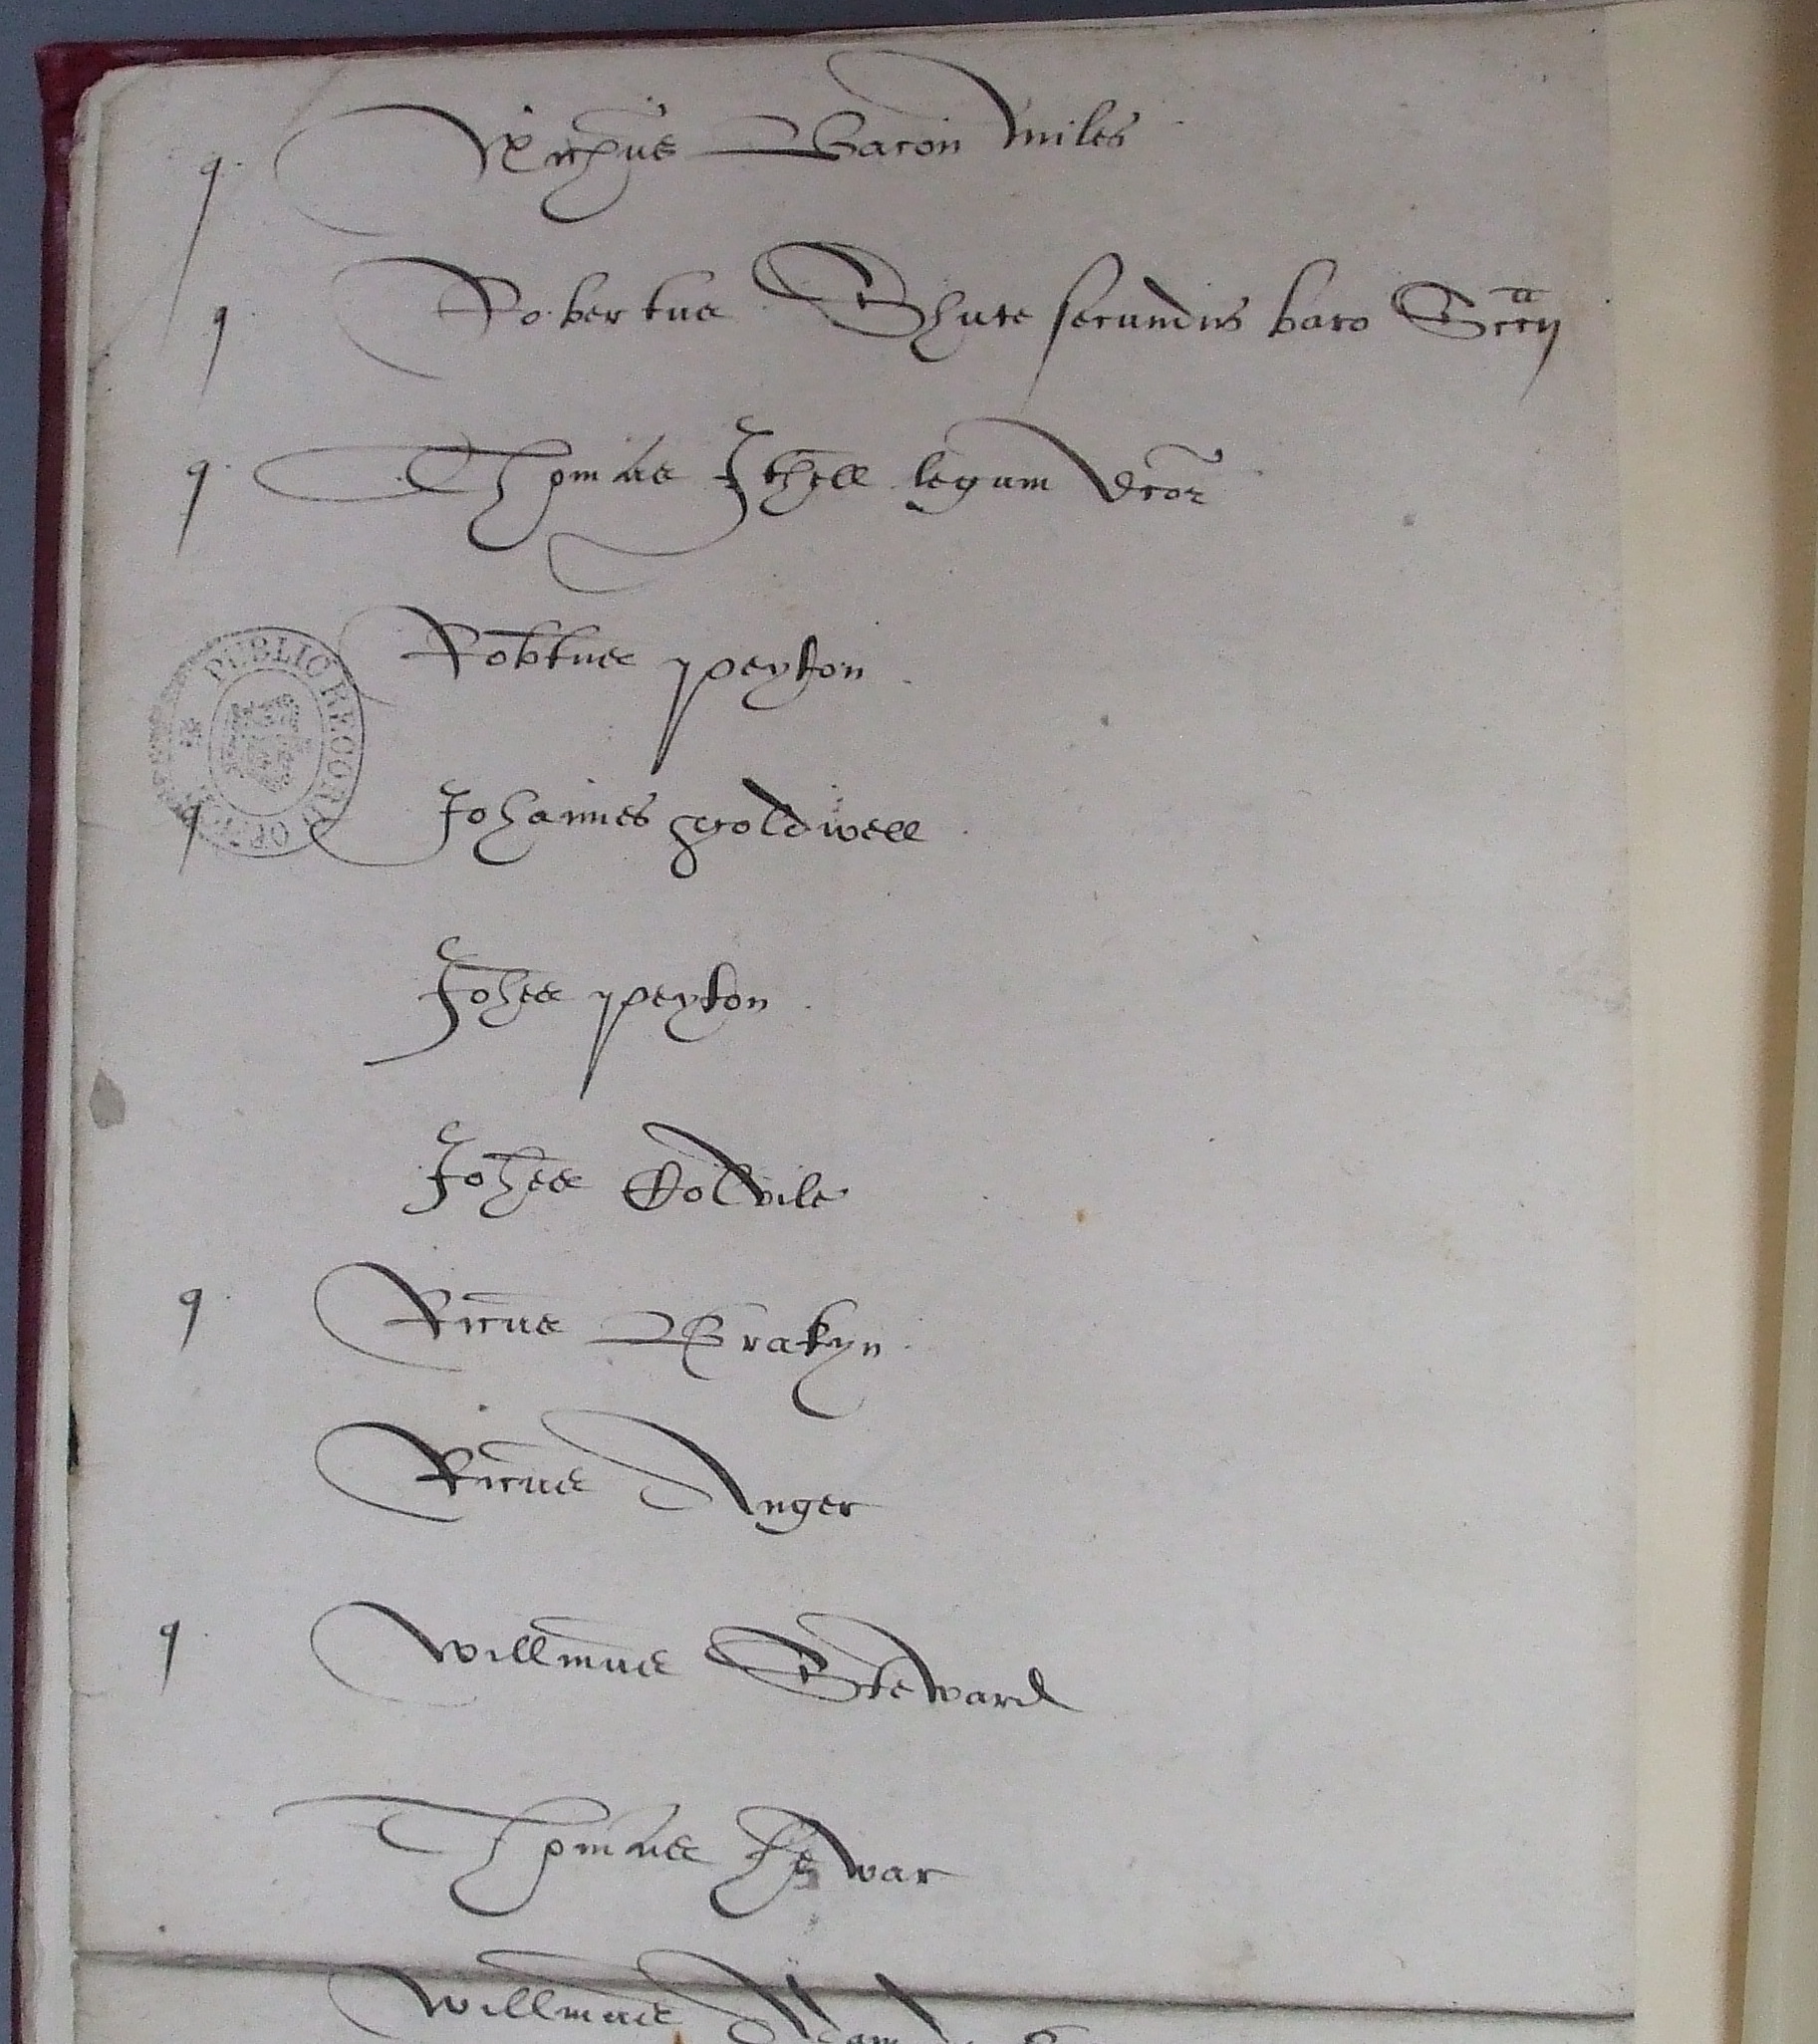 q. Nichus Bacon Miles
q Robertus Shute secundus baro Sccij
q. Thomas Ithell legum dcor
Robtus Peyton
q Johannes Goldwell
Johes Peyton
Johes Colvile
q. Ricus Brakyn
Ricus Anger
q Willmus Steward
Thomas
Willmus
PUBLIC RECORD OFFICE